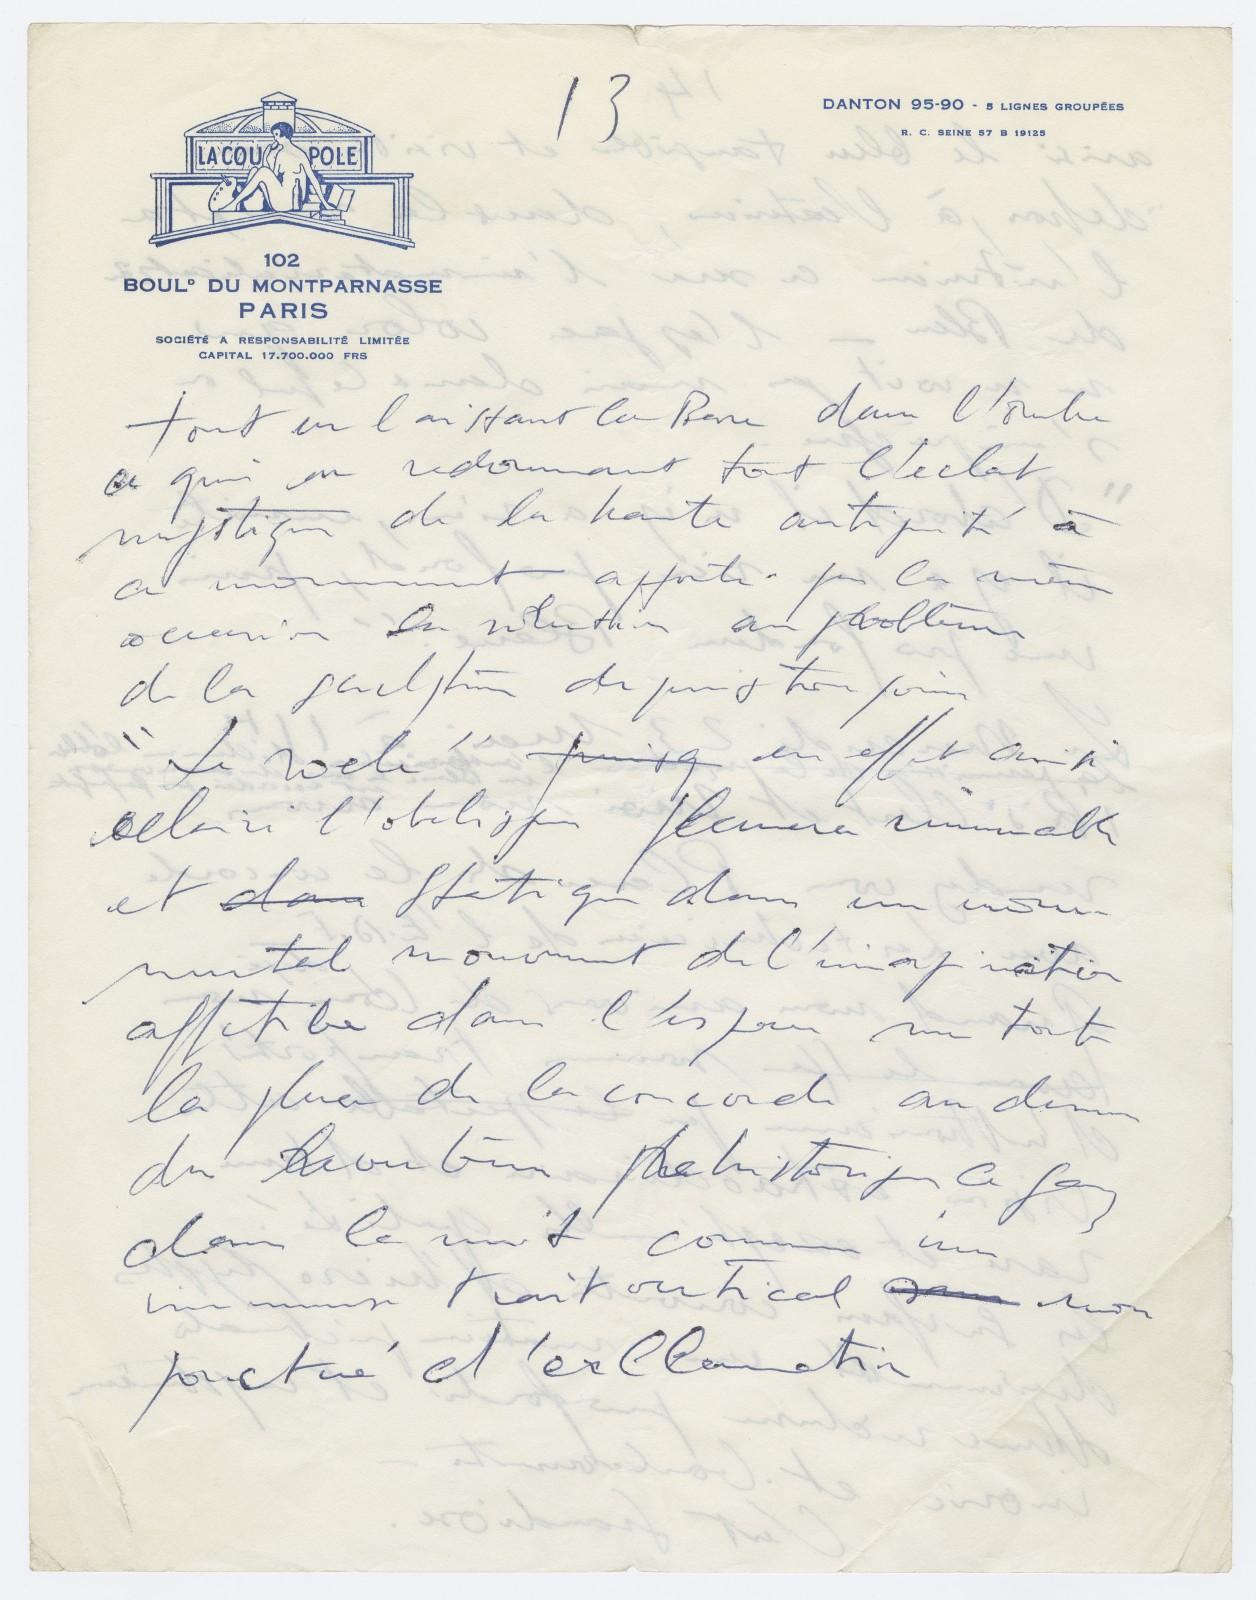 13
LA COUPOLE
102
BOULD DU MONTPARNASSE
PARIS
SOCIÉTÉ A RESPONSABILITÉ LIMITÉE
CAPITAL 17.700.000 FRS
DANTON 95-90 - 5 LIGNES GROUPÉES
R. C. SEINE 57 B 19125
tout en laissant la Base dans l'ombre
ce qui en redonnant tout l'éclat
mystique de la haute antiquité à
ce monument apporte par la même
occasion la solution au problème
de la sculpture depuis toujours
"Le socle" puisq en effet ainsi
éclairé l'obélisque planera immuable
et dans statique dans un monu-
mental mouvement de l'imagination
affective dans l'espace sur toute
la place de la concorde au dessus
du lumières préhistorique à gaz
dans la nuit comme un
immense trait vertical sans non
ponctué d'exclamation